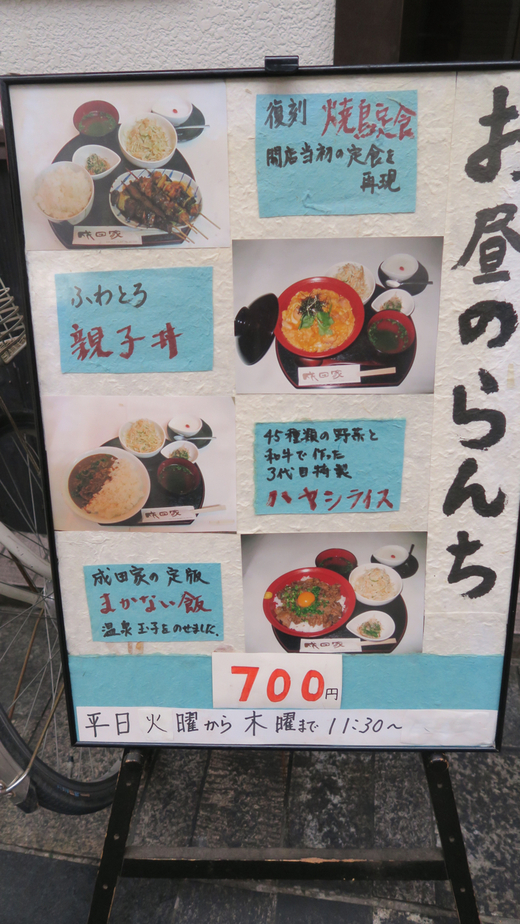 お昼のらんち
復刻 焼鳥定食
開店当初の定食を
再現
ふわとろ
親子丼
45種類の野菜と
和牛で作った
3代目特製
ハヤシライス
成田家の定版
まかない飯
温泉玉子をのせました。
700円
平日火曜から木曜まで 11:30〜